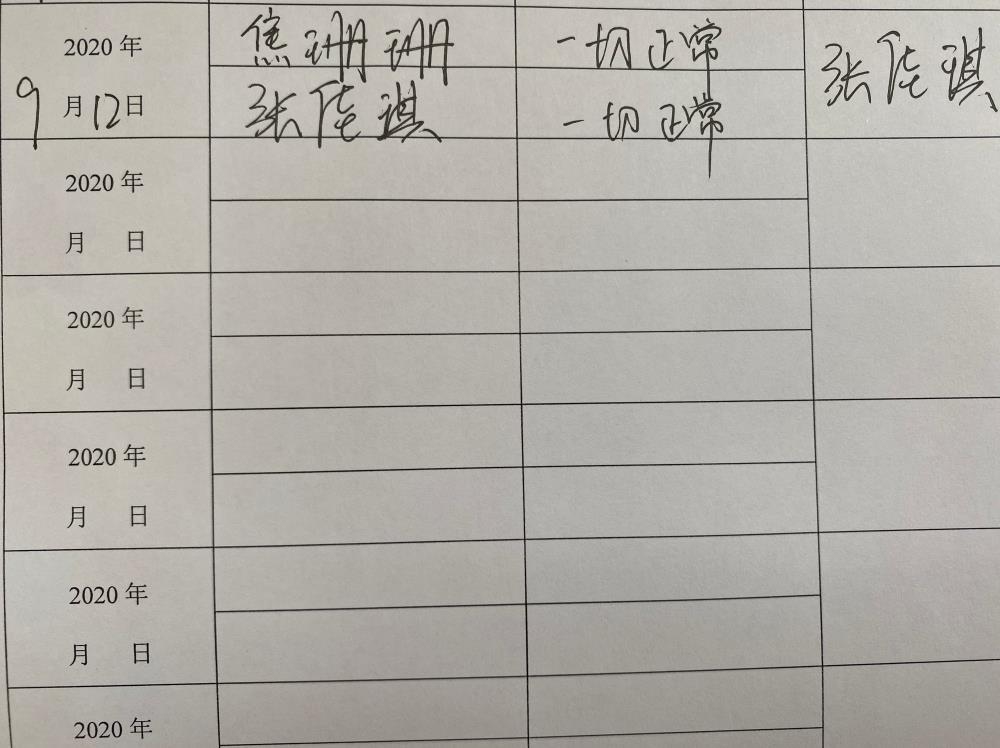 2020 年
9 月 12 日
焦珊珊
一切正常
张佳琪
一切正常
张佳琪
2020 年
月 日
2020 年
月 日
2020 年
月 日
2020 年
月 日
2020 年